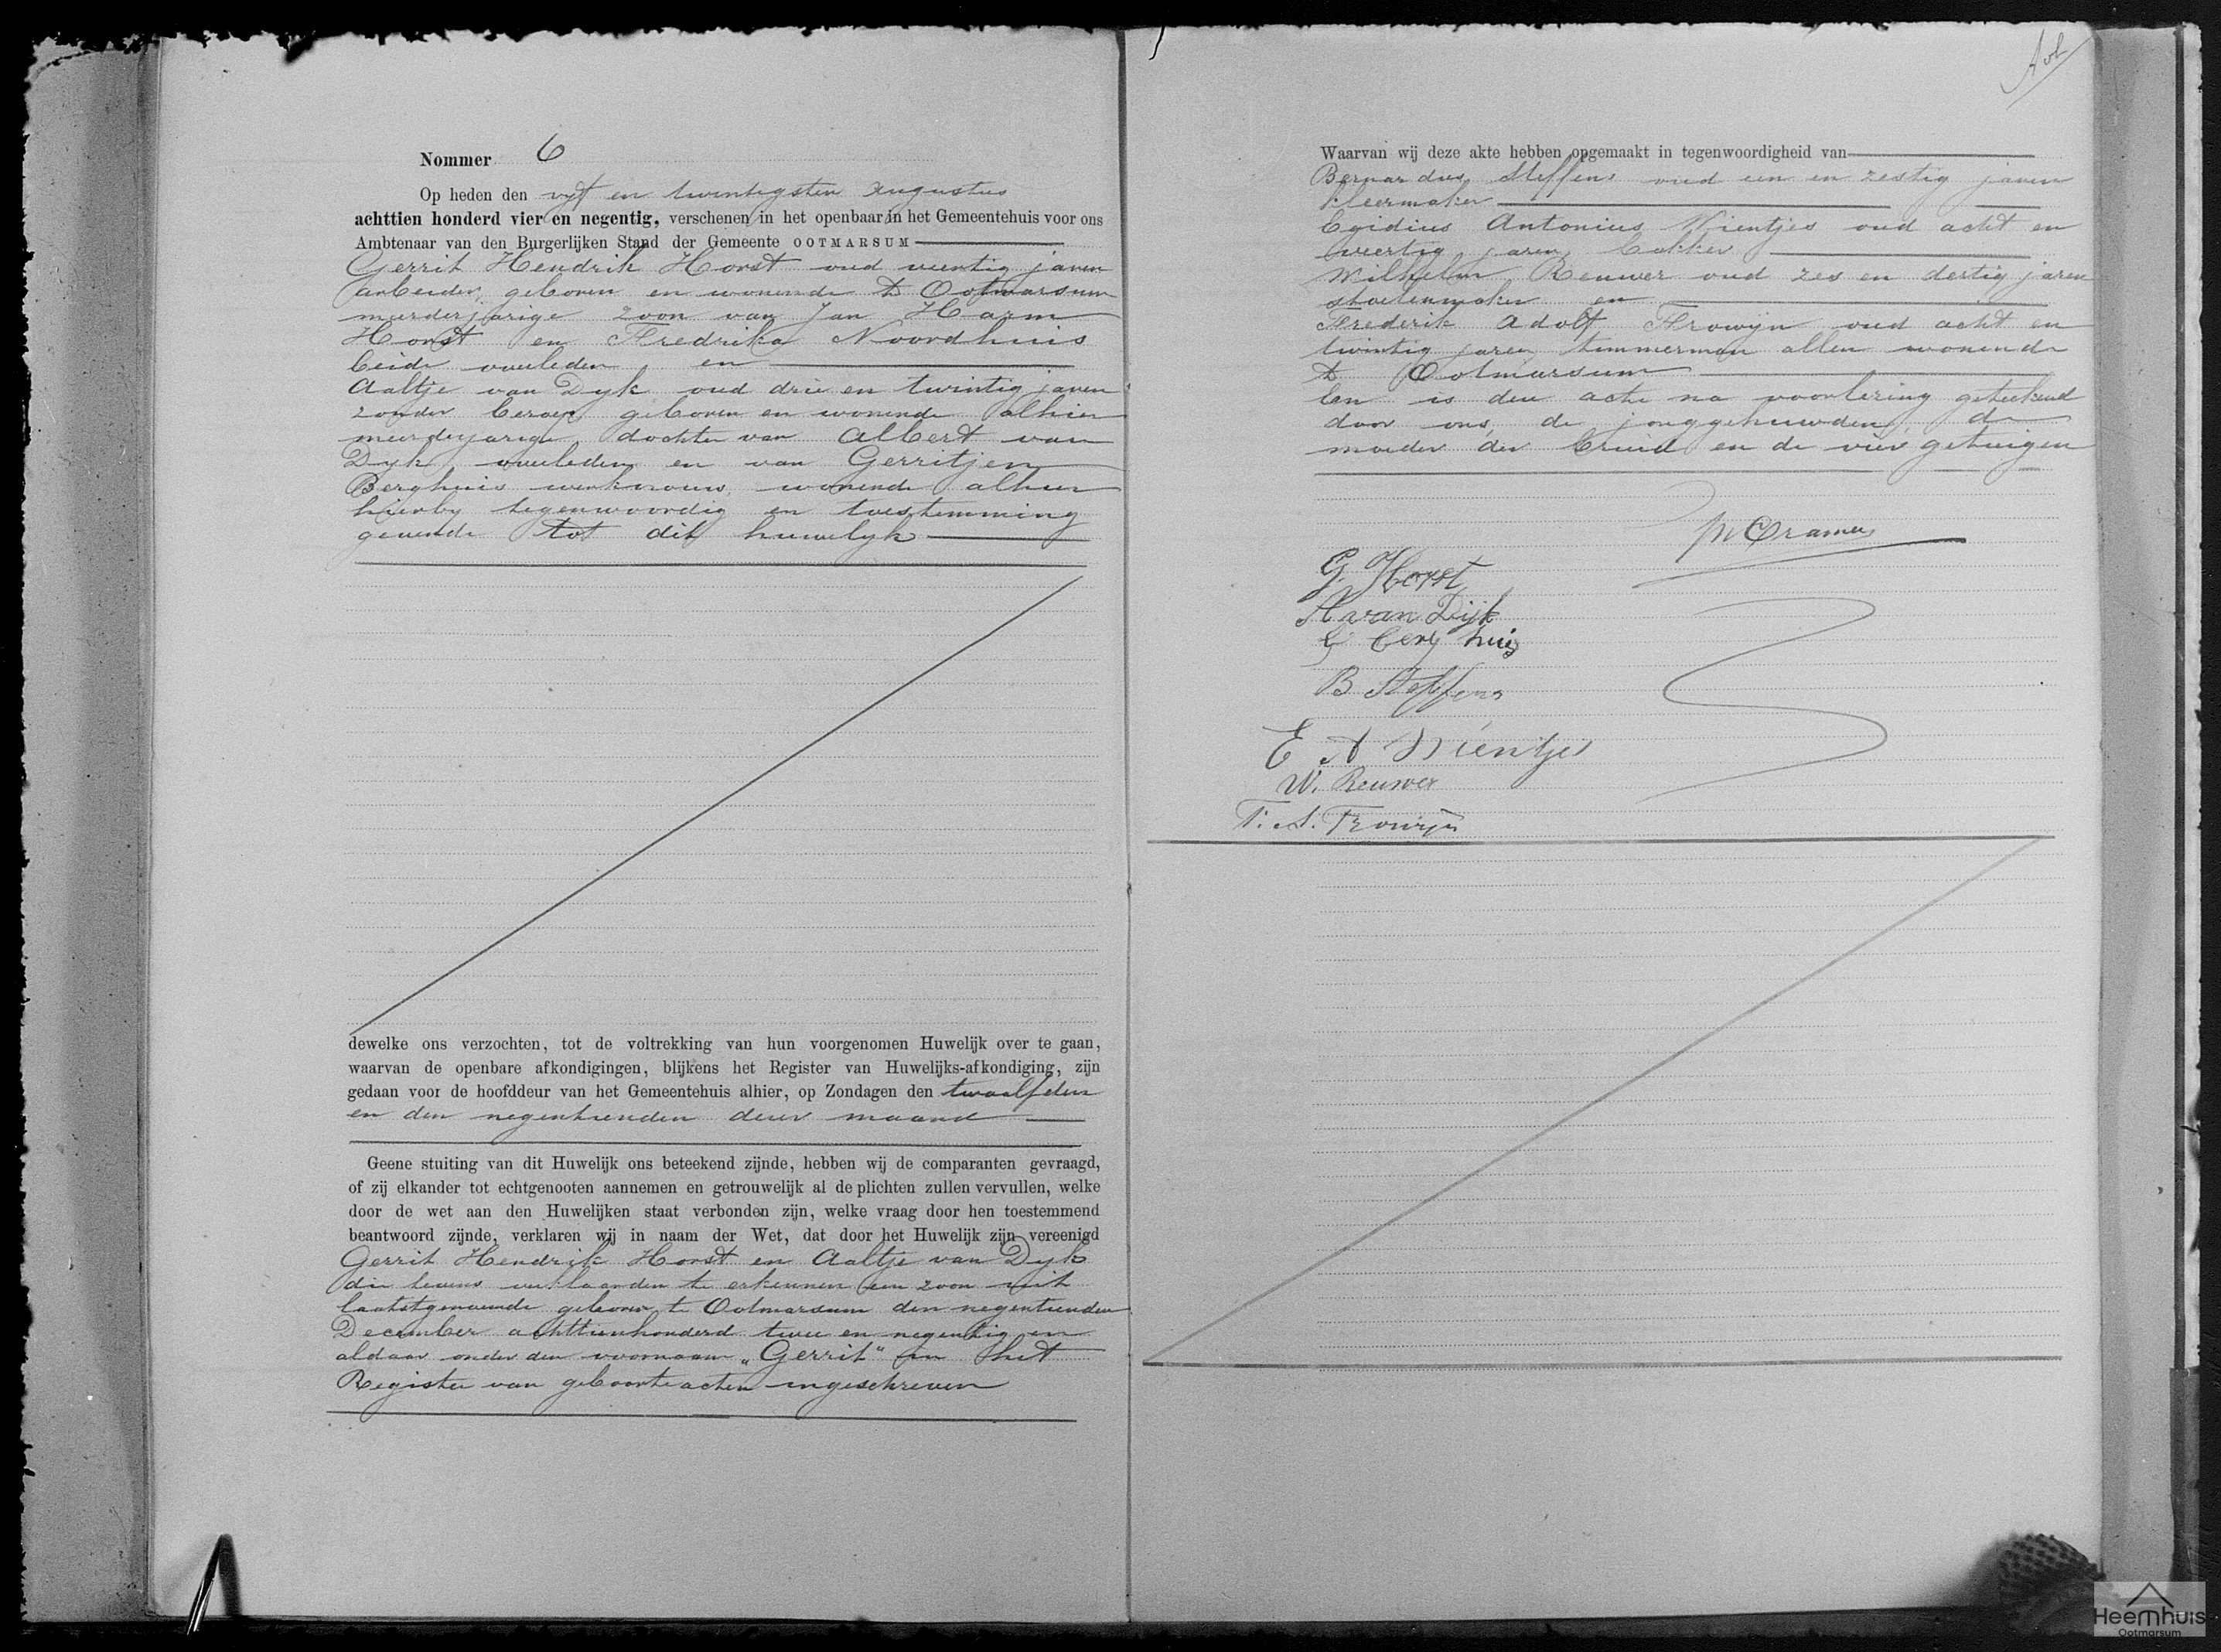 Nommer 6
Op heden den vyf en twintigsten Augustus
achttien honderd vier en negentig, verschenen in het openbaar in het Gemeentehuis voor ons
Ambtenaar van den Burgerlijken Stand der Gemeente OOTMARSUM
Gerrit Hendrik Horst oud veertig jaren
arbeider, geboren en wonende te Ootmarsum
meerderjarige zoon van Jan Harm
Horst en Fredrika Noordhuis
beide overleden en
Aaltje van Dyk oud drie en twintig jaren
zonder beroep geboren en wonende alhier
meerderjarige dochter van Albert van
Dyk, overleden en van Gerritjen
Berghuis werkvrouw, wonende alhier
hierby tegenwoordig en toestemming
gevende tot dit huwelyk
dewelke ons verzochten, tot de voltrekking van hun voorgenomen Huwelijk over te gaan,
waarvan de openbare afkondigingen, blijkens het Register van Huwelijks-afkondiging, zijn
gedaan voor de hoofddeur van het Gemeentehuis alhier, op Zondagen den twaalfden
en den negentienden dezer maand
Geene stuiting van dit Huwelijk ons beteekend zijnde, hebben wij de comparanten gevraagd,
of zij elkander tot echtgenooten aannemen en getrouwelijk al de plichten zullen vervullen, welke
door de wet aan den Huwelijken staat verbonden zijn, welke vraag door hen toestemmend
beantwoord zijnde, verklaren wij in naam der Wet, dat door het Huwelijk zijn vereenigd
Gerrit Hendrik Horst en Aaltje van Dyk
die tevens verklaarden te erkennen een zoon uit
laatstgenoemde geboren te Ootmarsum den negentienden
December achttienhonderd twee en negentig en
aldaar onder den voornaam „Gerrit" in het
Register van geboorteacten ingeschreven
Waarvan wij deze akte hebben opgemaakt in tegenwoordigheid van
Bernardus Steffens oud een en zestig jaren
kleermaker
Egidius Antonius Nientjes oud acht en
veertig jaren, bakker
Wilhelm Reuwer oud zes en dertig jaren
stoelenmaker en
Frederik Adolf Frowijn oud acht en
twintig jaren timmerman allen wonende
te Ootmarsum
En is deze acte na voorlezing geteekend
door ons, de jonggehuwden, de
moeder der bruid en de vier getuigen
Cramer
G. Horst
A van Dijk
G berg huis
B Steffens
E A Nientjes
W. Reuwer
F. A. Frowijn
Heemhuis
Ootmarsum